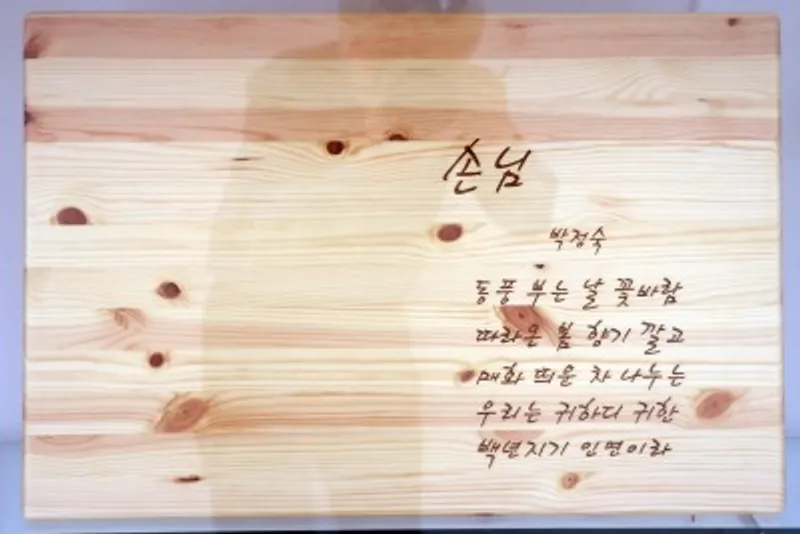 손님
박정숙
동풍 부는 날 꽃바람
따라온 봄 향기 깔고
매화 띄운 차 나누는
우리는 귀하디 귀한
백년지기 인연이라